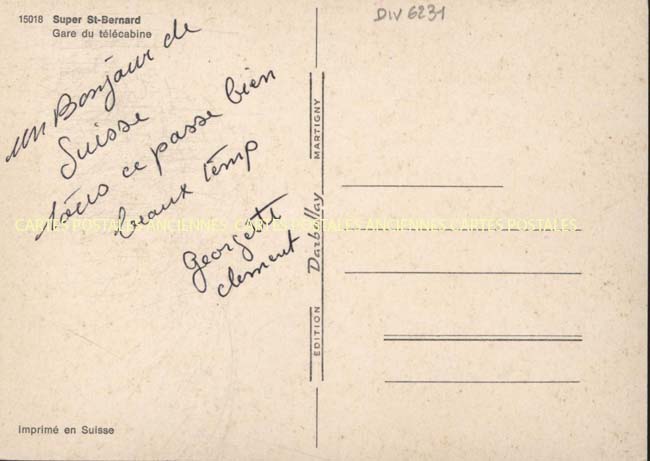 15018 Super St-Bernard
Gare du télécabine
DIV 6231
un Bonjour de
Suisse
tous ce passe bien
beaux temp
Georgett
clement
CARTES POSTALES ANCIENNES CARTES POSTALES ANCIENNES CARTES POSTALES
EDITION Darbellay MARTIGNY
Imprimé en Suisse